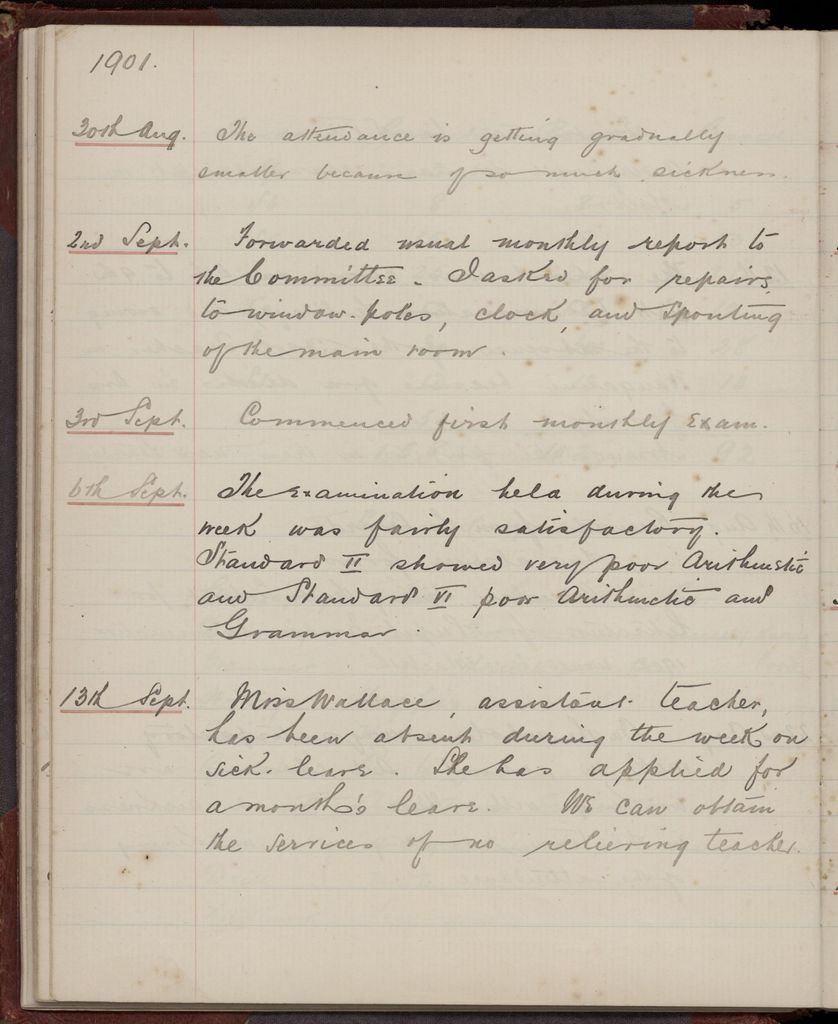 1901.
30th Aug. The attendance is getting gradually
smaller because of so much sickness.
2nd Sept. Forwarded usual monthly report to
the Committee. I asked for repairs
to window-poles, clock, and spouting
of the main room.
3rd Sept. Commenced first monthly Exam.
6th Sept. The Examination held during the
week was fairly satisfactory.
Standard II showed very poor Arithmetic
and Standard VI poor Arithmetic and
Grammar.
13th Sept. Miss Wallace, assistant teacher,
has been absent during the week on
sick-leave. She has applied for
a month's leave. We can obtain
the services of no relieving teacher.